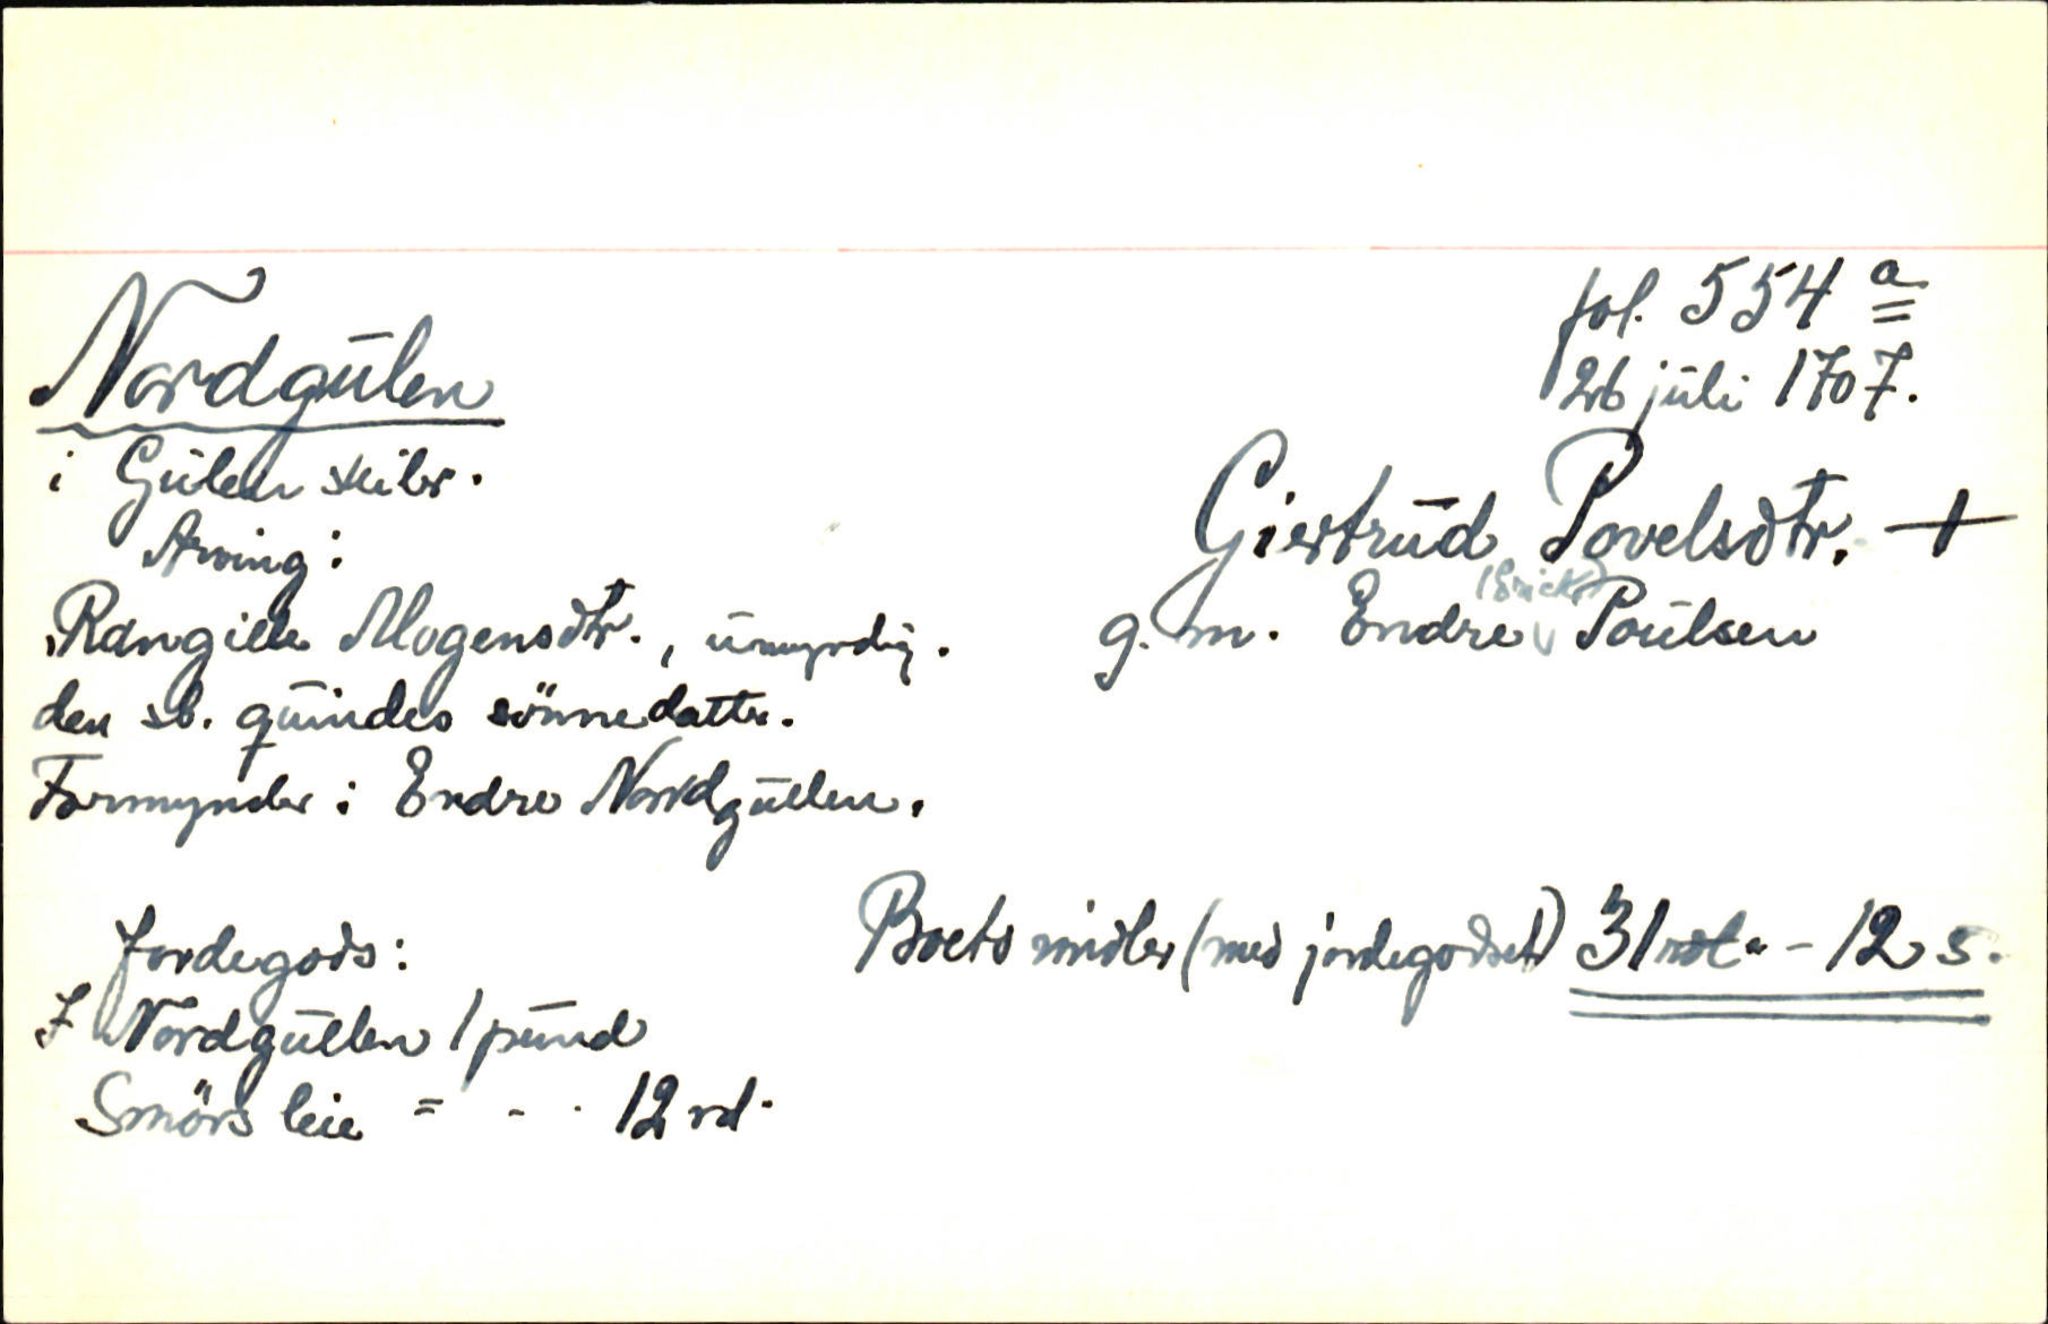 Nordgūlen
i Gūlen skibr.
Arving:
Rangille Mogensdtr., ūmyndig.
den sb. qūindes sönnedatter.
Formynder: Endre Nordgūllen.
Jordegods:
I Nordgūllen 1 pūnd
Smörs leie = - - 12 rd.
fol. 554 a
26 jūli 1707.
Giertrūd Povelsdtr. +
g. m. Endre (Erick) Poūlsen
Boets midler (med jordegodset) 31 rdl. - 12 s.